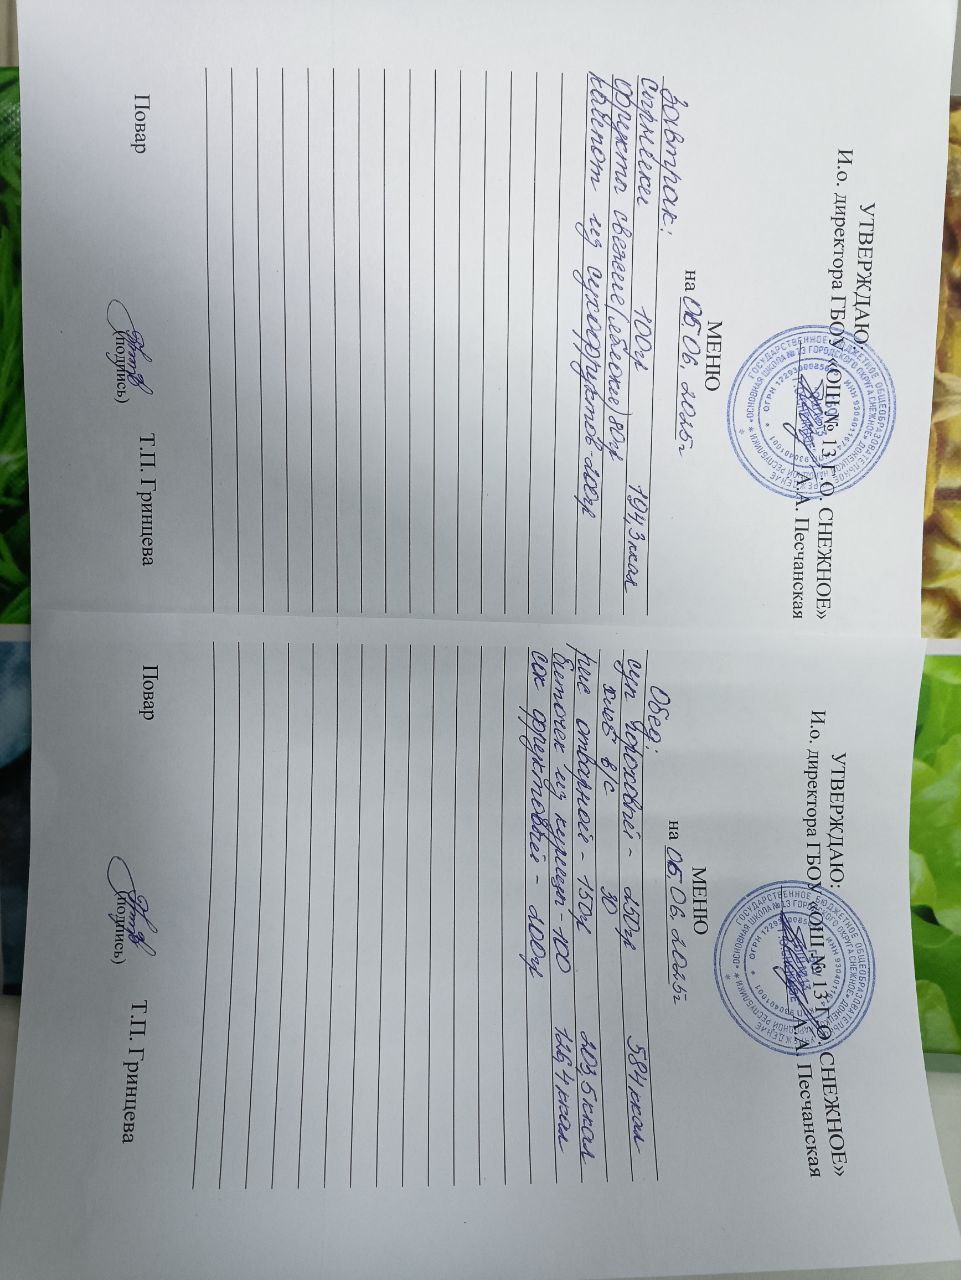 УТВЕРЖДАЮ
И.о. директора ГБОУ «ОШ № 13 Г.О. СНЕЖНОЕ»
А.А. Песчанская
МЕНЮ
на 06.06.2025г
Завтрак:
сырники 100г 194,3 ккал
Фрукты свежие (яблоки) 80г
компот из сухофруктов-200г
Повар
(подпись)
Т.П. Гринцева
УТВЕРЖДАЮ:
И.о. директора ГБОУ «ОШ № 13 Г.О. СНЕЖНОЕ»
А.А. Песчанская
МЕНЮ
на 06.06.2025г
Обед:
суп гороховый - 250г 584 ккал
хлеб в/с 30
рис отварной - 150г 203,5 ккал
биточек из курицы-100 126,4 ккал
сок фруктовый - 200г
Повар
(подпись)
Т.П. Гринцева